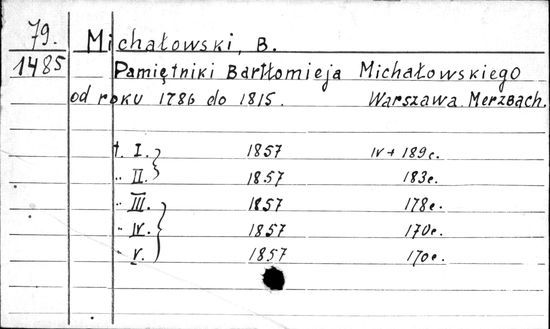 79.
1485
Michałowski, B.
Pamiętniki Bartłomieja Michałowskiego
od roku 1786 do 1815. Warszawa. Merzbach.
t. I. 1857 IV + 189c.
" II. 1857 183c.
" III. 1857 178c.
" IV. 1857 170c.
" V. 1857 170c.